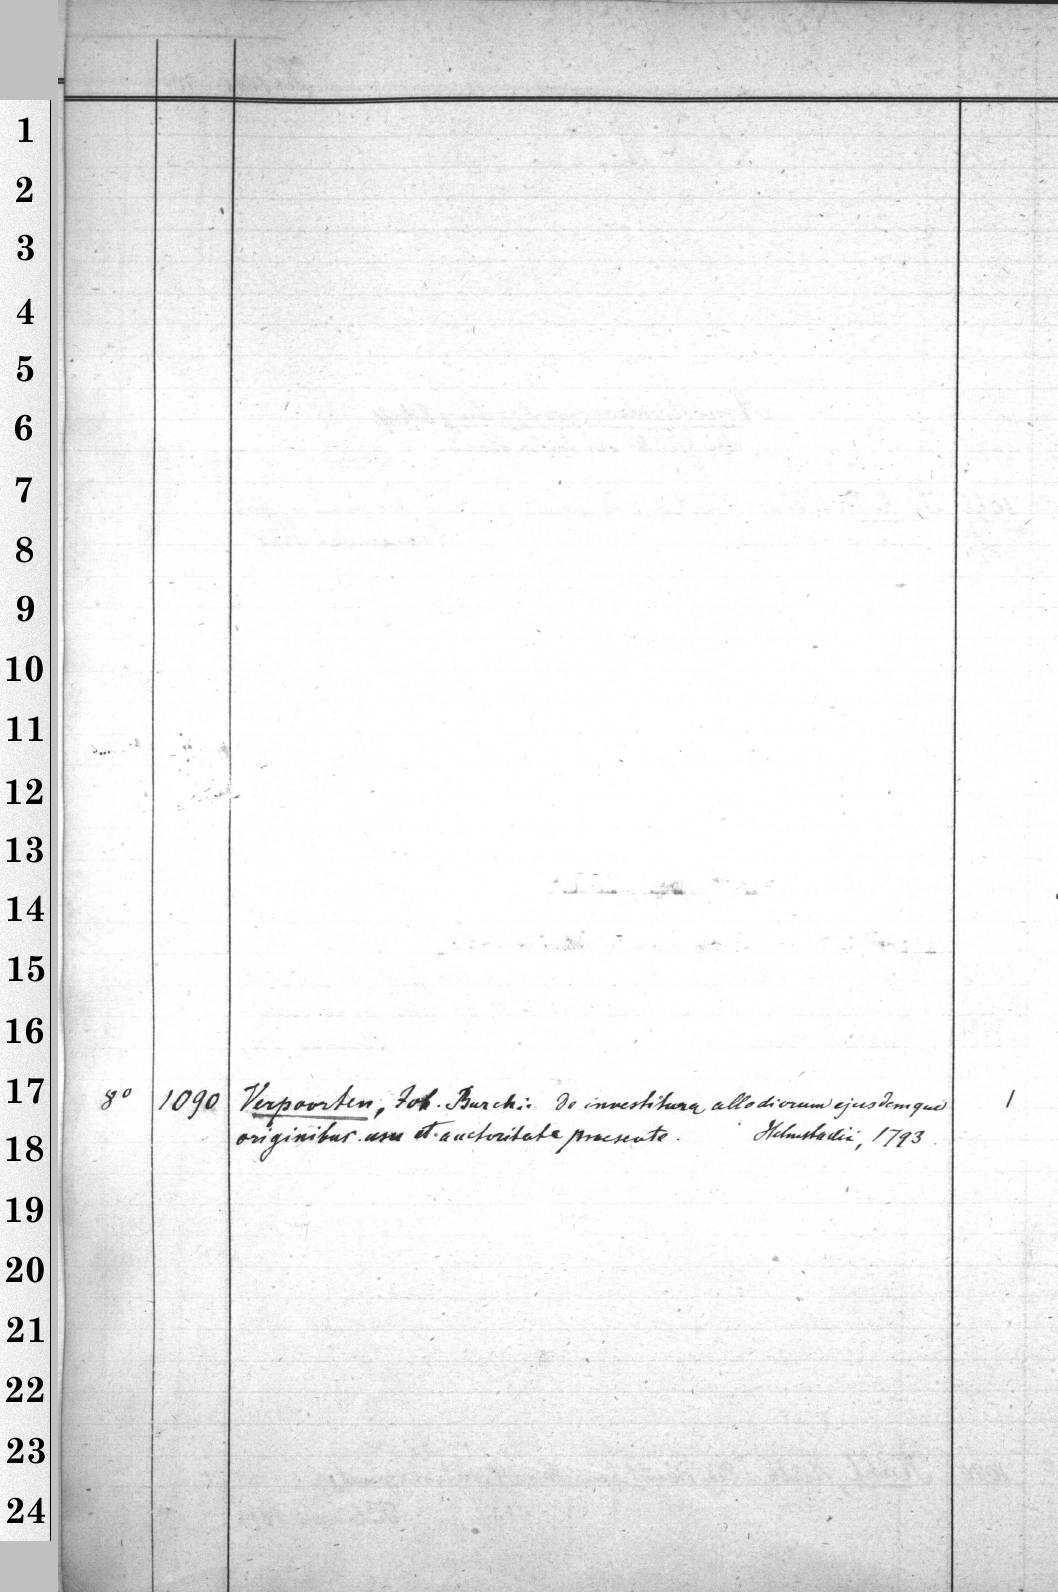 1
2
3
4
5
6
7
8
9
10
11
12
13
14
15
16
17
8° 1090 Verpoorten, Joh. Burch: De investitura allodiorum ejusdemque 1
originibus usu et auctoritate praesente. Helmstadii, 1793.
18
19
20
21
22
23
24